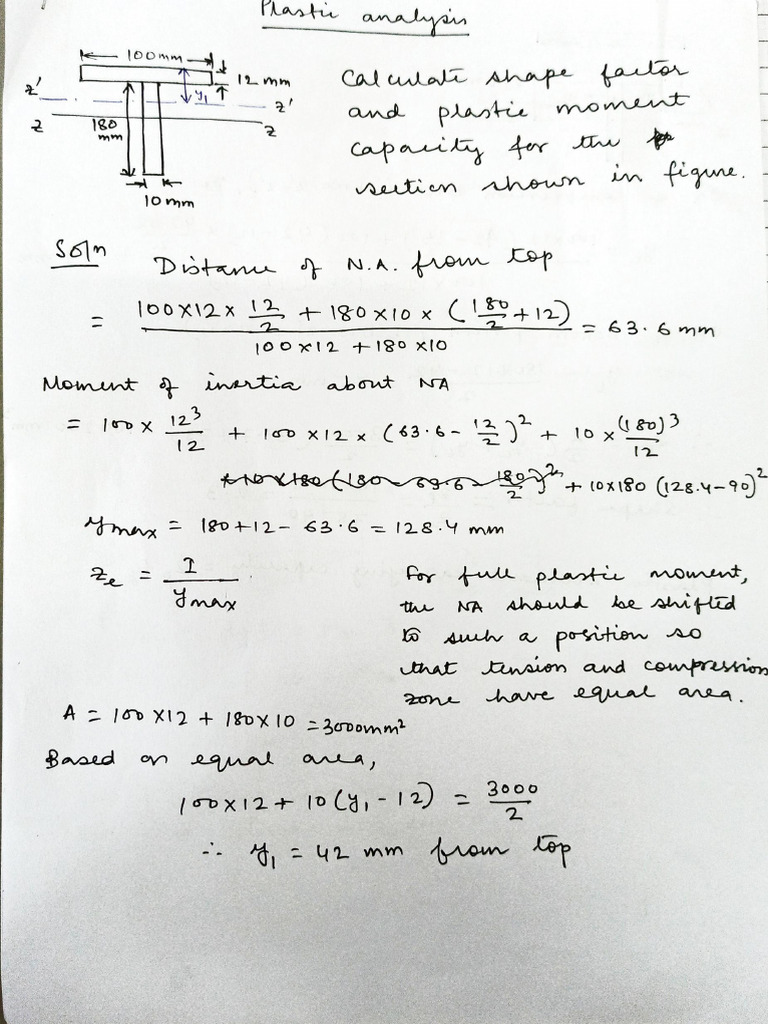 Plastic analysis
100mm
12 mm
y₁
z' z'
z z
180 mm
10 mm
Calculate shape factor
and plastic moment
capacity for the
section shown in figure.
Soln Distance of N.A. from top
= (100×12× 12/2 + 180×10× (180/2 + 12)) / (100×12 + 180×10) = 63.6 mm
Moment of inertia about NA
= 100 × 12³/12 + 100×12× (63.6 - 12/2)² + 10 × (180)³/12
+ 10×180 (128.4-90)²
ymax = 180+12- 63.6 = 128.4 mm
Ze = I/ymax
For full plastic moment,
the NA should be shifted
to such a position so
that tension and compression
zone have equal area.
A = 100×12 + 180×10 = 3000mm²
Based on equal area,
100×12 + 10(y₁-12) = 3000/2
∴ y₁ = 42 mm from top